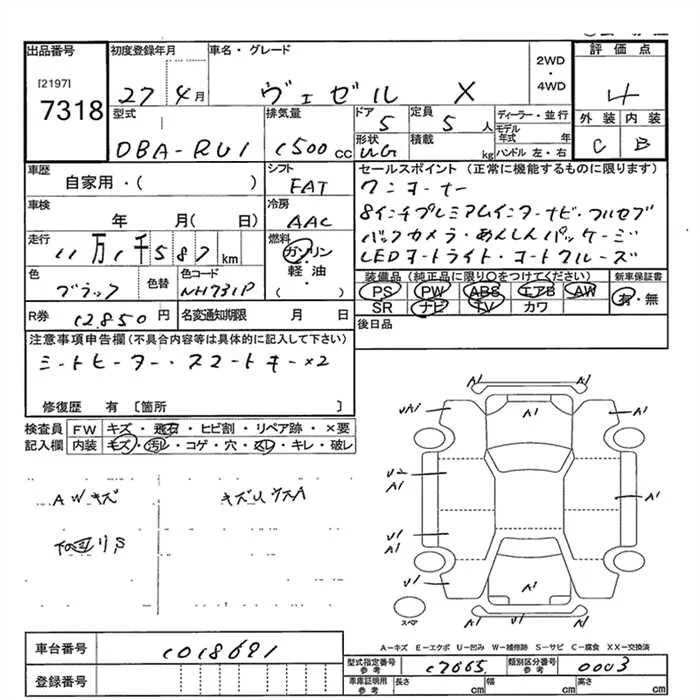 出品番号 初度登録年月 車名・グレード 評価点
[2197]
7318
27 4月 ヴェゼル X 2WD・4WD 4
型式 排気量 ドア 定員 ディーラー・並行 外装 内装
DBA-RU1 1500cc 5 5人 モデル年式 年 C B
形状 積載 ハンドル 左・右
UG kg
車歴 シフト セールスポイント(正常に機能するものに限ります)
自家用・( ) FAT ワンオーナー
車検 冷房 8インチプレミアムインターナビ・フルセグ
年 月(日) AAC バックカメラ・あんしんパッケージ
走行 燃料 LEDヘッドライト・オートクルーズ
11万1千587km ガソリン・軽油・( )
色 色替 色コード 装備品(純正品に限り○をつけてください) 新車保証書
ブラック NH731P PS PW ABS エアB AW 有・無
SR ナビ TV カワ
R券 12850円 名変通知期限 月 日 後日品
注意事項申告欄(不具合内容等は具体的に記入して下さい)
シートヒーター・スマートキー×2
修復歴 有 [箇所 ]
検査員 FW キズ・飛石・ヒビ割・リペア跡・×要
記入欄 内装 キズ・汚レ・コゲ・穴・スレ・キレ・破レ
AWキズ キズUワスA
下回リS
A1
UA1 A1 A1
U2
A1 A1
U1
A1
U1 A1 A1
U1 A1
スペア
A-キズ E-エクボ U-凹み W-補修跡 S-サビ C-腐食 XX-交換済
車台番号 1018691
型式指定番号 参考 17665 類別区分番号 参考 0003
登録番号 車庫証明用 参考 長さ cm 幅 cm 高さ cm